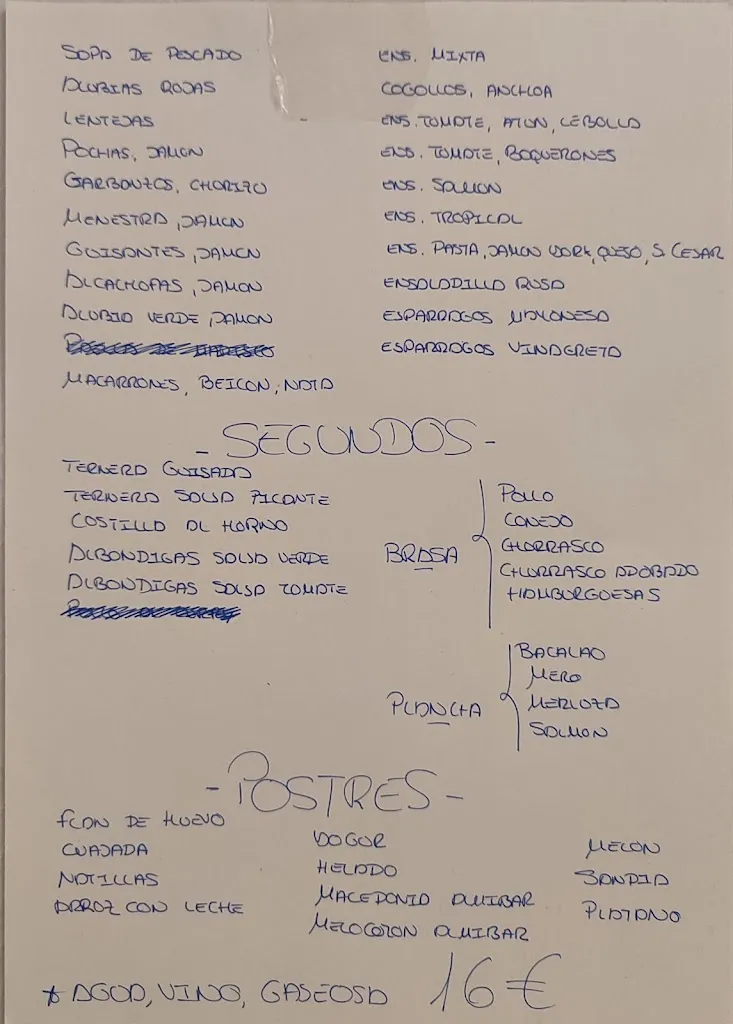 SOPA DE PESCADO
ALUBIAS ROJAS
LENTEJAS
POCHAS, JAMON
GARBANZOS, CHORIZO
MENESTRA, JAMON
GUISANTES, JAMON
ALCACHOFAS, JAMON
ALUBIA VERDE, JAMON
MACARRONES, BEICON, NATA
ENS. MIXTA
COGOLLOS, ANCHOA
ENS. TOMATE, ATUN, CEBOLLA
ENS. TOMATE, BOQUERONES
ENS. SALMON
ENS. TROPICAL
ENS. PASTA, JAMON YORK, QUESO, S. CESAR
ENSALADILLA RUSA
ESPARRAGOS MAYONESA
ESPARRAGOS VINAGRETA
- SEGUNDOS -
TERNERA GUISADA
TERNERA SALSA PICANTE
COSTILLA AL HORNO
ALBONDIGAS SALSA VERDE
ALBONDIGAS SALSA TOMATE
BRASA
POLLO
CONEJO
CHURRASCO
CHURRASCO ADOBADO
HAMBURGUESAS
PLANCHA
BACALAO
MERO
MERLUZA
SALMON
- POSTRES -
FLAN DE HUEVO
CUAJADA
NATILLAS
ARROZ CON LECHE
YOGUR
HELADO
MACEDONIA ALMIBAR
MELOCOTON ALMIBAR
MELON
SANDIA
PLATANO
* AGUA, VINO, GASEOSA 16€